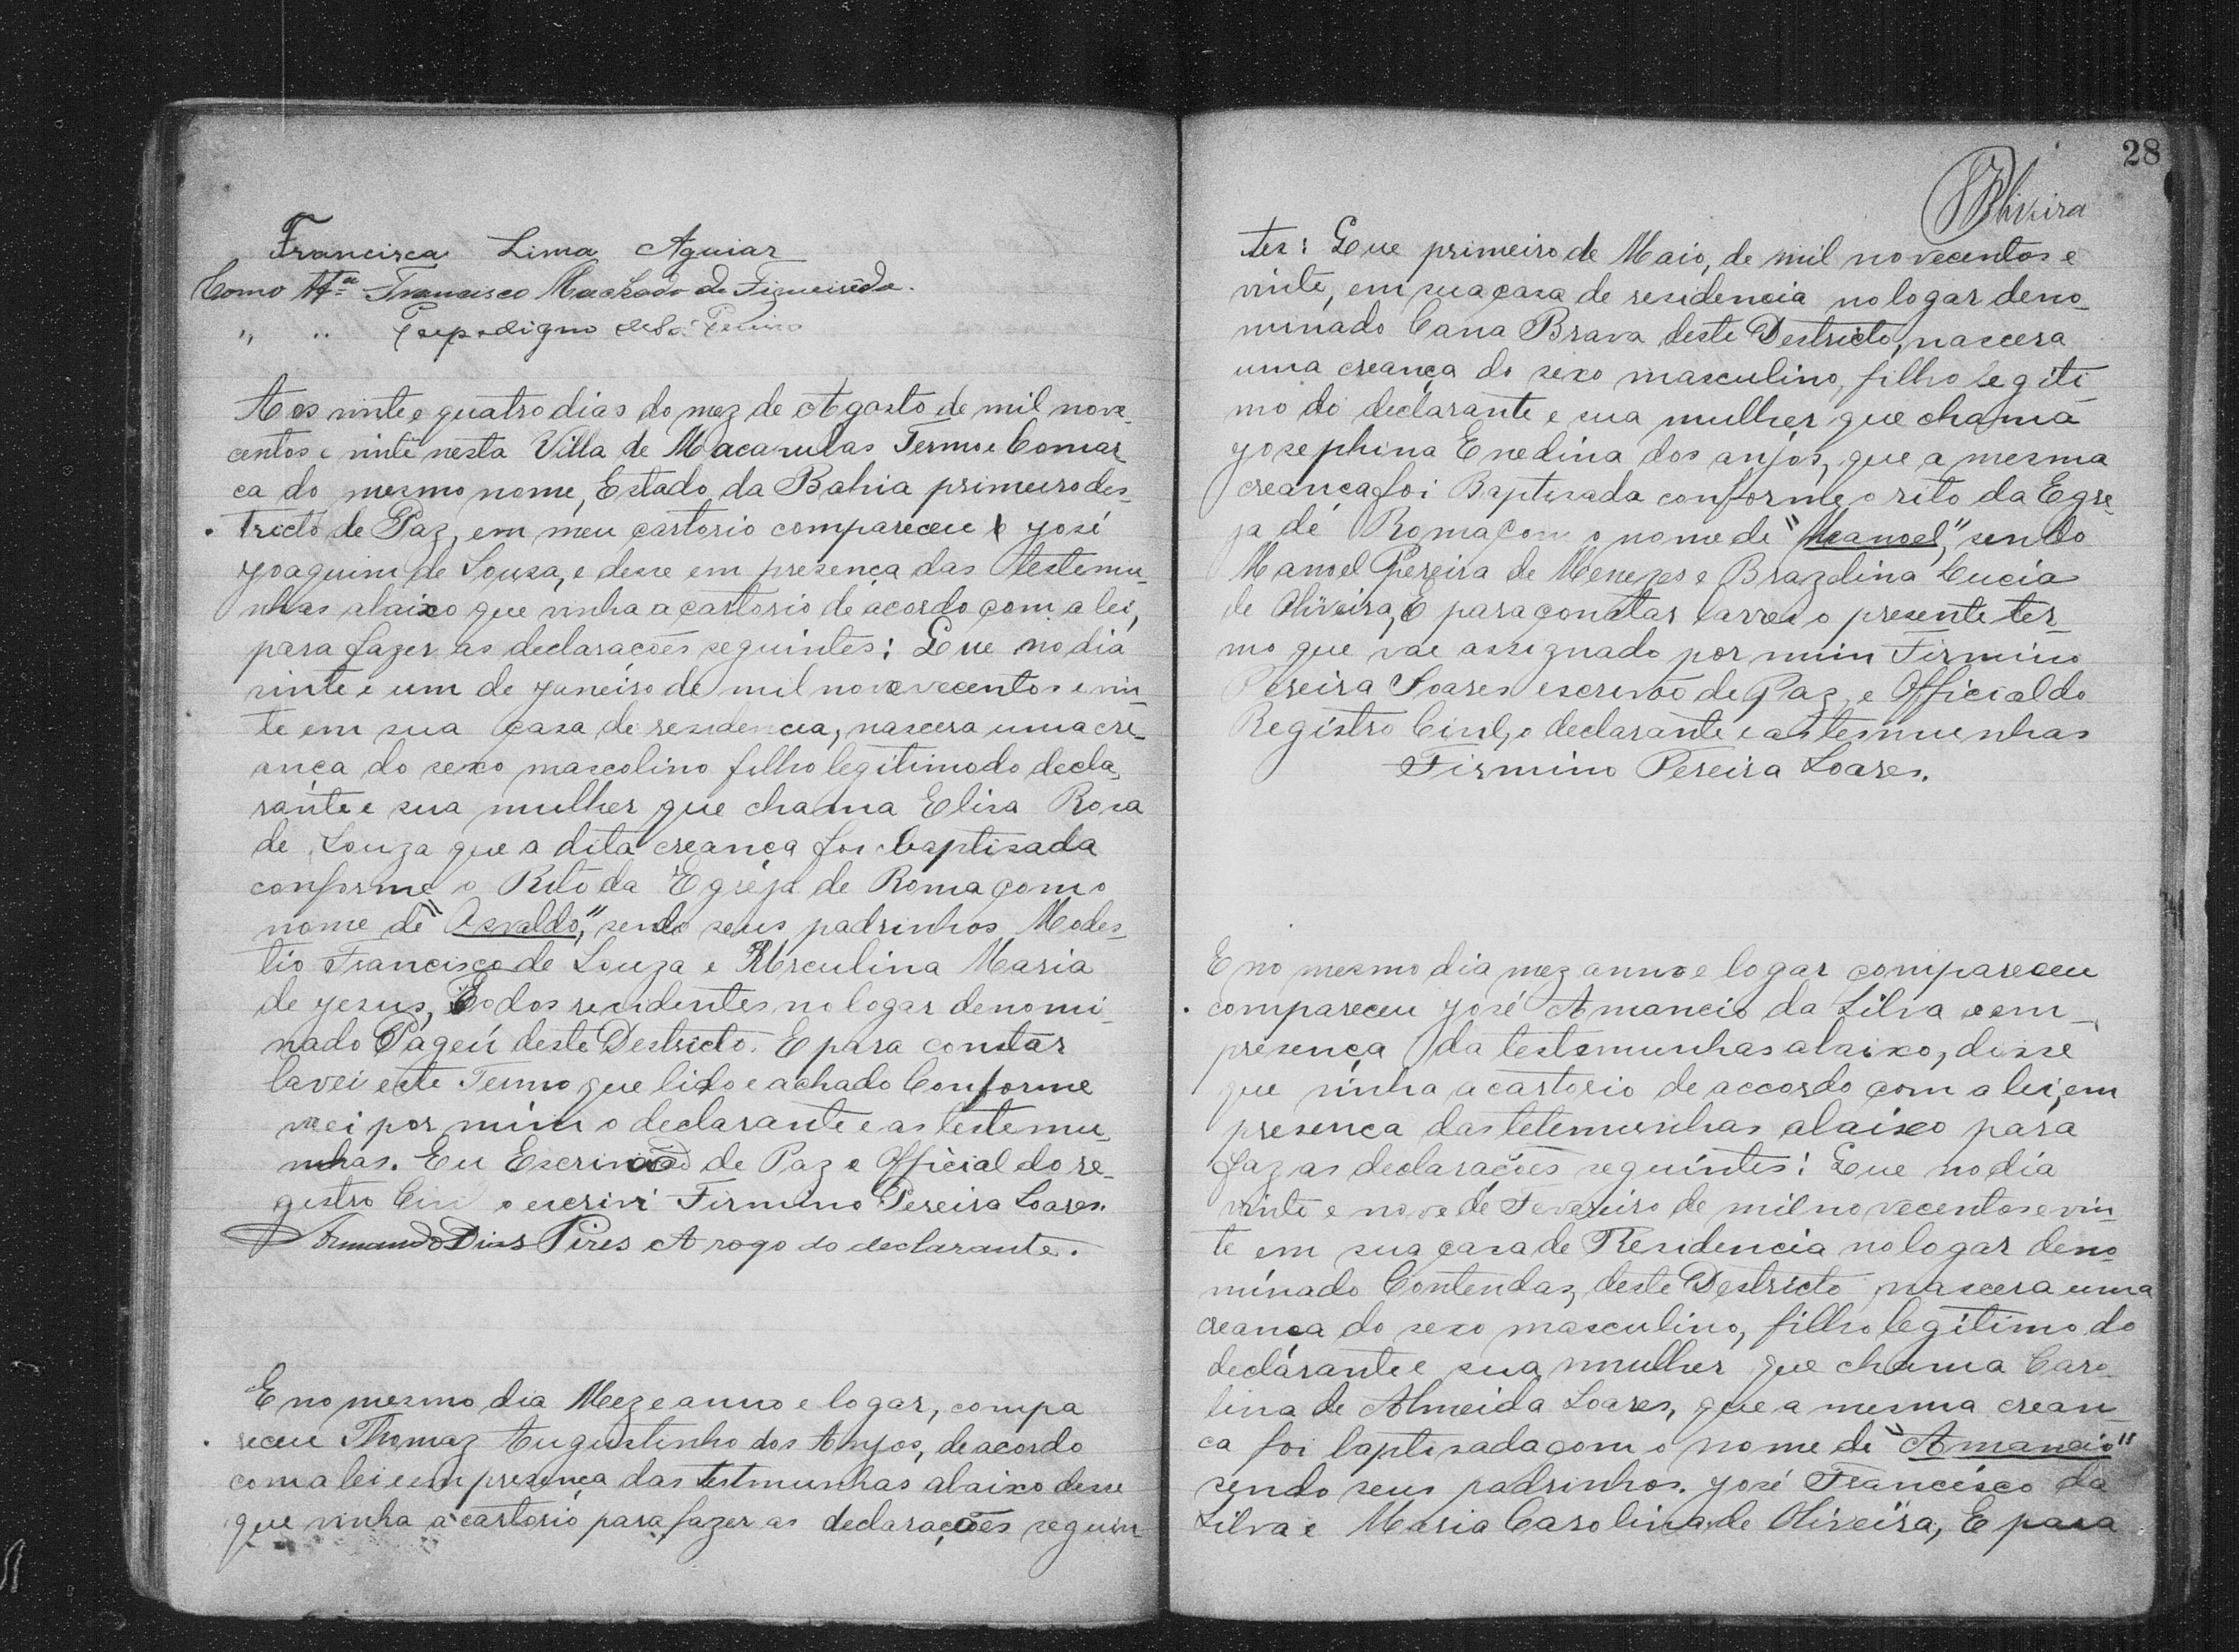 Francisca Lima Aguiar
Como Tta Francisco Machado de Figueirêdo.
" "
Aos vinte e quatro dias do mez de Agosto de mil nove-
centos e vinte nesta Villa de Macaubas Termo e Comar
ca do mesmo nome, Estado da Bahia primeiro des-
tricto de Paz, em meu cartorio compareceu José
Joaquim de Sousa, e desse em presença das testemu-
nhas abaixo que vinha a cartorio de acordo com a lei,
para fazer as declaracões seguintes: Que no dia
vinte e um de Janeiro de mil novevecentos e vin-
te em sua casa de residencia, nascera uma cre-
ança do sexo mascolino filho legitimo do decla-
rante e sua mulher que chama Elisa Rosa
de Souza que a dita creança foi baptisada
conforme o Rito da Egreja de Roma com o
nome de "Osvaldo," sendo seus padrinhos Modes-
tio Francisco de Souza e Herculina Maria
de Jesus, Todos residentes no logar denomi-
nado Pageú deste Destricto. E para constar
lavei este Termo que lido e achado Conforme
vei por mim o declarante e as testemu-
nhas. Eu Escrivão de Paz e Official do re-
gistro Civil o escrivi Firmino Pereira Soares.
Armando Dias Pires A rogo do declarante.
E no mesmo dia Mez e anno e logar, compa
receu Thomaz Augustinho dos Anjos, de acordo
com a lei e em presença das testmunhas abaixo desse
que vinha a cartorio para fazer as declarações seguin-
28
Oliveira
tes: Que primeiro de Maio, de mil novecentos e
vinte, em sua casa de residencia no logar deno-
minado Cana Brava deste Destricto, nascera
uma creança do sexo masculino, filho legiti-
mo do declarante e sua mulher que chama
Josephina Enedina dos anjos, que a mesma
creança foi Baptisada conforme o rito da Egre-
ja de Roma com o nome de "Manoel," sendo
Manoel Pereira de Menezes e Brazelina Lucia
de Oliveira, E para constar larrei o presente ter-
mo que vae assignado por mim Firmino
Pereira Soares escrivão de Paz, e Official do
Registro Civil, o declarante e as tesmunhas
Firmino Pereira Soares.
E no mesmo dia mez anno e logar compareceu
compareceu José Amancio da Silva e em-
presença da testemunhas abaixo, disse
que vinha a cartorio de accordo com a lei, em
presença das tetemunhas abaixo para
faz as declarações seguintes: Que no dia
vinte e nove de Fevereiro de mil novecentos e vin-
te em sua casa de Residencia no logar deno-
minado Contendas, deste Destricto nascera uma
creança do sexo masculino, filho legitimo do
declarante e sua mulher que chama Caro-
lina de Almeida Soares, que a mesma crean-
ca foi baptisada com o nome de "Amancio"
sendo seus padrinhos. José Francisco da
Silva e Maria Carolina de Oliveira, E para